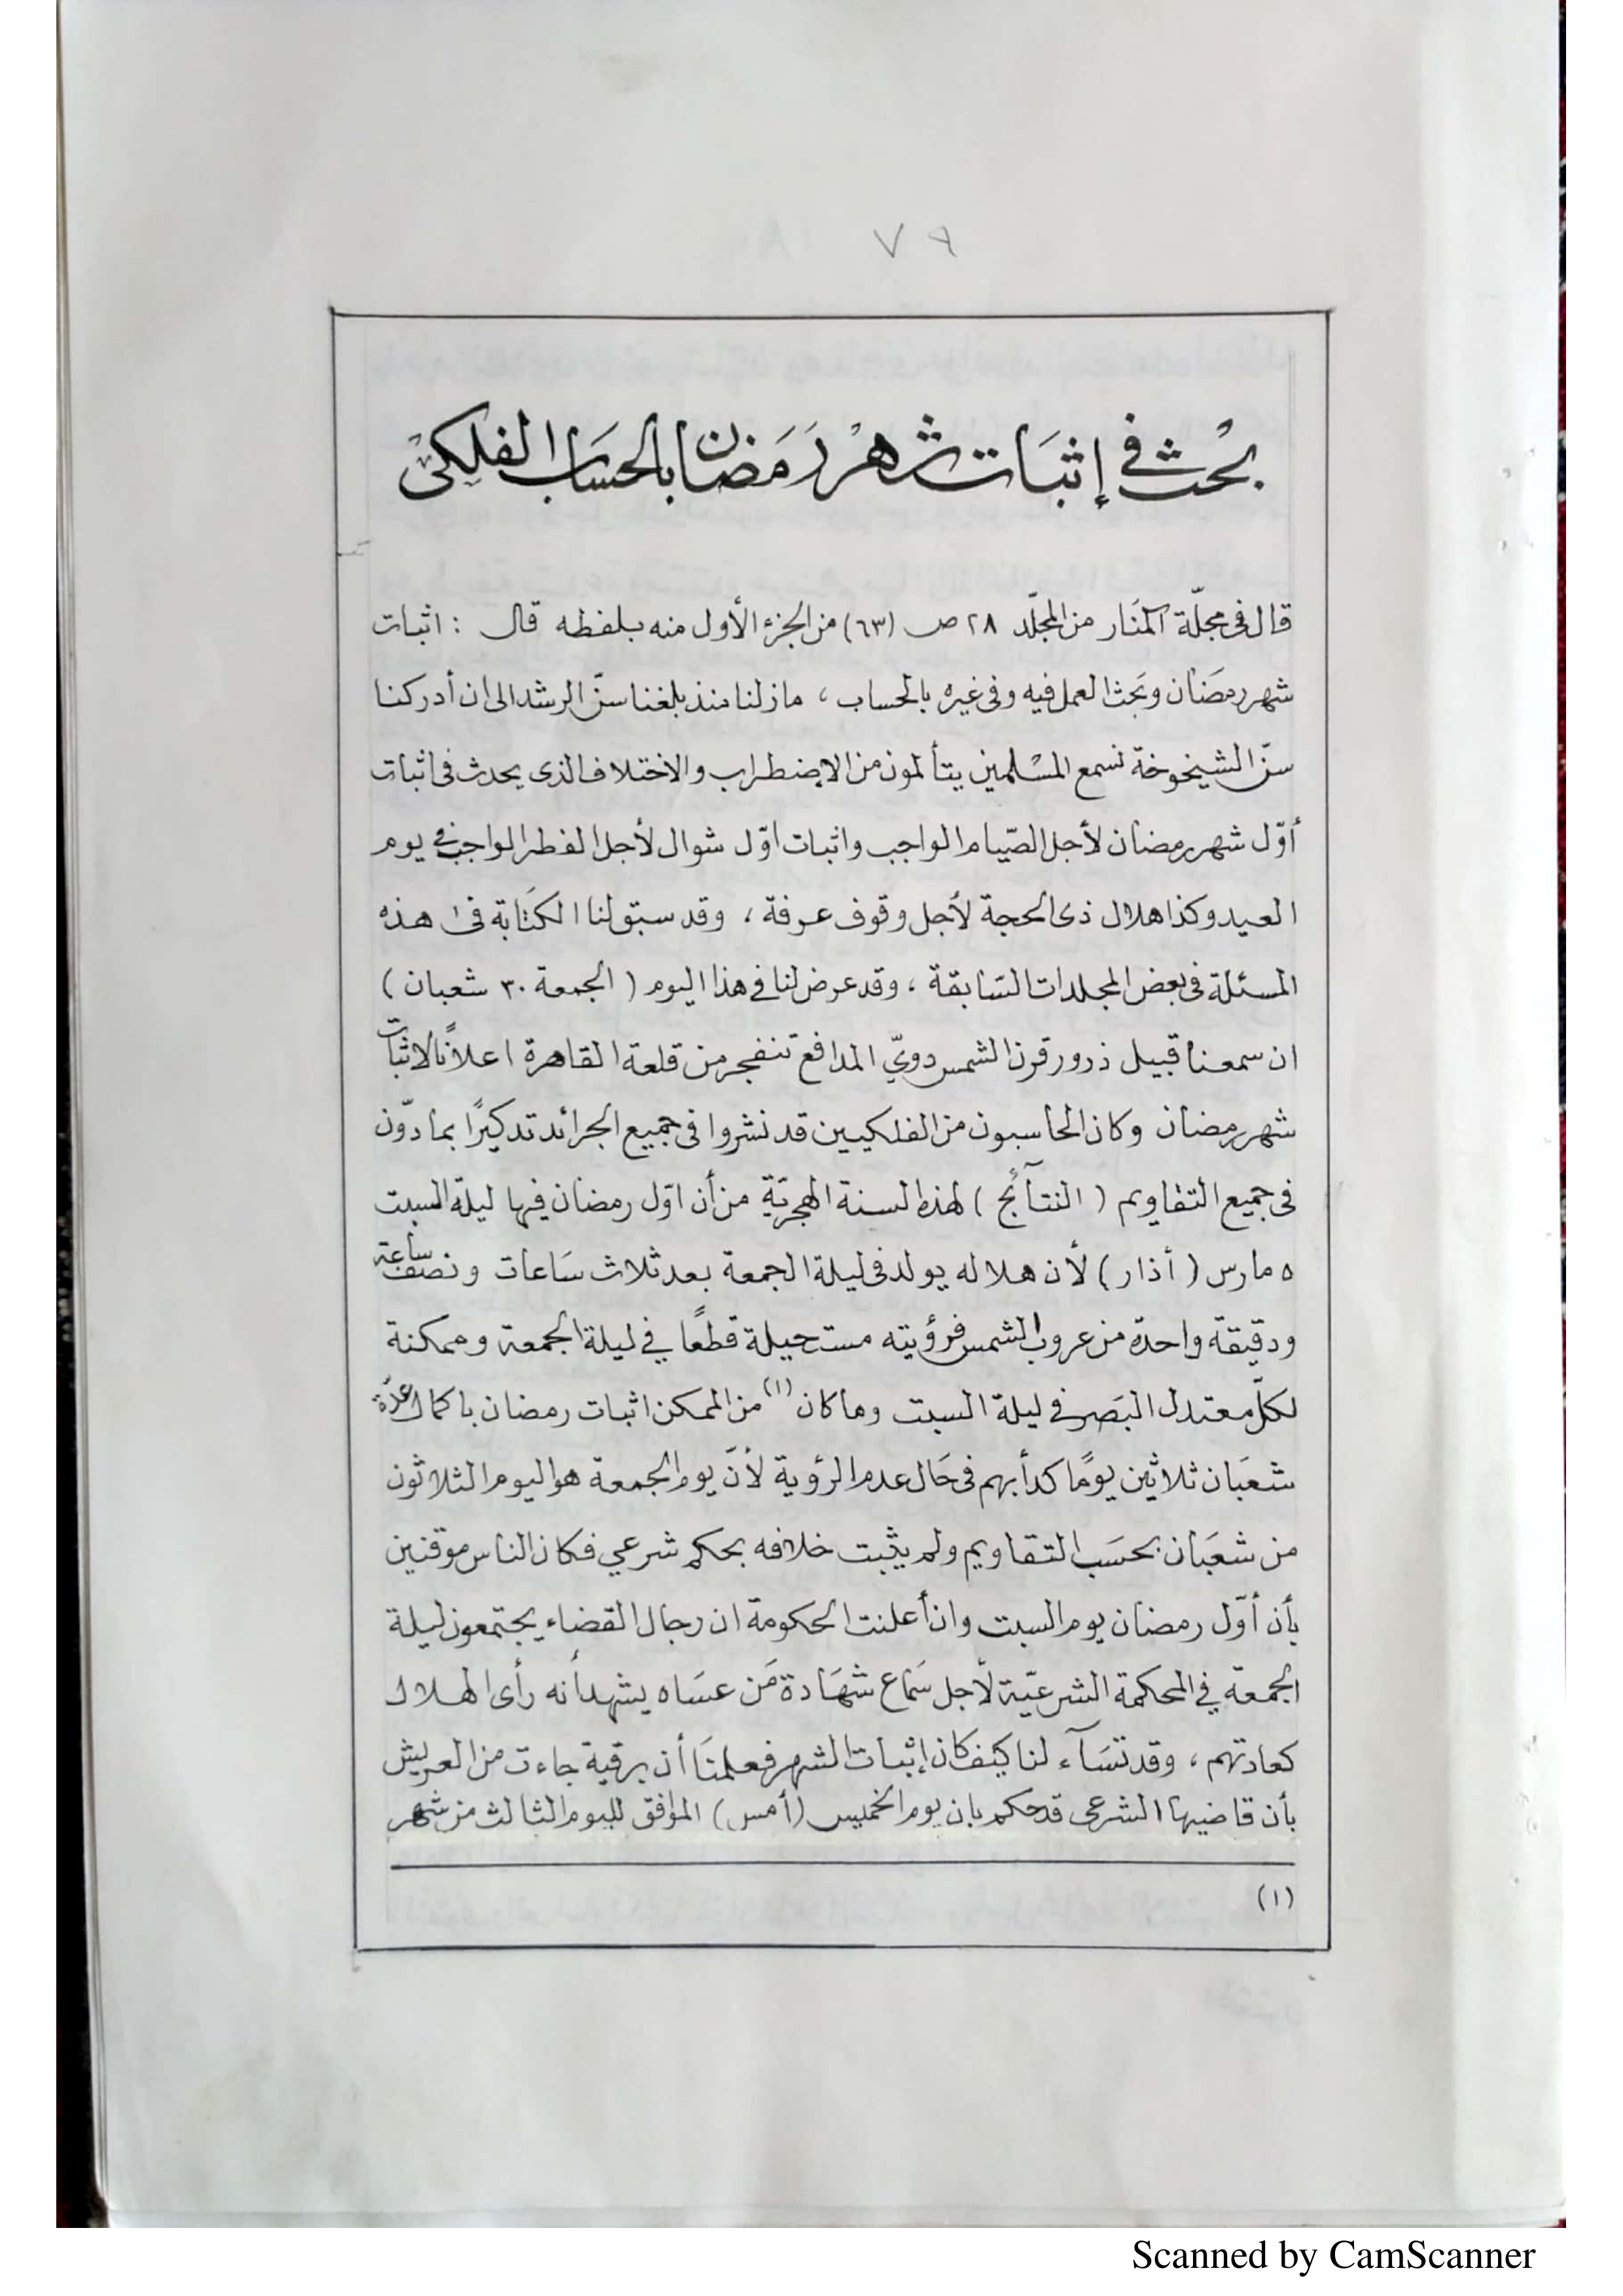 ٧٩
بحث في إثبات شهر رمضان بالحساب الفلكي
قال فى مجلّة المنار من المجلّد ٢٨ ص (٦٣) من الجزء الأول منه بلفظه قال : اثبات
شهر رمضان وبحث العمل فيه وفى غيره بالحساب ، مازلنا منذ بلغنا سنّ الرشد الى ان أدركنا
سنّ الشيخوخة نسمع المسلمين يتألمون من الاضطراب والاختلاف الذى يحدث فى اثبات
أوّل شهر رمضان لأجل الصّيام الواجب واثبات اوّل شوال لأجل الفطر الواجب في يوم
العيد وكذا هلال ذى الحجة لأجل وقوف عرفة ، وقد سبق لنا الكتابة فى هذه
المسئلة فى بعض المجلدات السّابقة ، وقد عرض لنا في هذا اليوم ( الجمعة ٣٠ شعبان )
ان سمعنا قبيل ذرور قرن الشمس دويّ المدافع تنفجر من قلعة القاهرة اعلانًا لاثبات
شهر رمضان وكان الحاسبون من الفلكيين قد نشروا فى جميع الجرائد تذكيرًا بما دوّن
فى جميع التقاويم ( النتآئج ) لهذه السنة الهجريّة من أن اوّل رمضان فيها ليلة السبت
٥ مارس ( أذار ) لأن هلاله يولد فى ليلة الجمعة بعد ثلاث سَاعات ونصف ساعة
ودقيقة واحدة من غروب الشمس فرؤيته مستحيلة قطعًا في ليلة الجمعة وممكنة
لكلّ معتدل البَصر في ليلة السبت وما كان (١) من الممكن اثبات رمضان باكمال عدّة
شعبَان ثلاثين يومًا كدأبهم فى حَال عدم الرؤية لأنّ يوم الجمعة هو اليوم الثلاثون
من شعبَان بحسَب التقاويم ولم يثبت خلافه بحكم شرعي فكان الناس موقنين
بأن أوّل رمضان يوم السبت وان أعلنت الحكومة ان رجال القضاء يجتمعون ليلة
الجمعة في المحكمة الشرعيّة لأجل سَماع شهَادة مَن عسَاه يشهد أنه رأى الهلال
كعادتهم ، وقد تسَآءلنا كيف كان إثبات الشهر فعلمنَا أن برقية جاءت من العريش
بأن قاضيها الشرعى قد حكم بان يوم الخميس (أمس) الموافق لليوم الثالث من شهر
(١)
Scanned by CamScanner